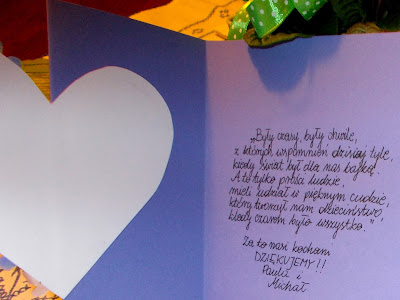 „Były czasy, były chwile,
z których wspomnień dzisiaj tyle,
kiedy świat był dla nas bajką.
A to tylko prości ludzie,
mieli udział w pięknym cudzie,
który tworzył nam dzieciństwo,
kiedy czarem było wszystko.”
Za to nasi kochani
DZIĘKUJEMY!!
i
Michał